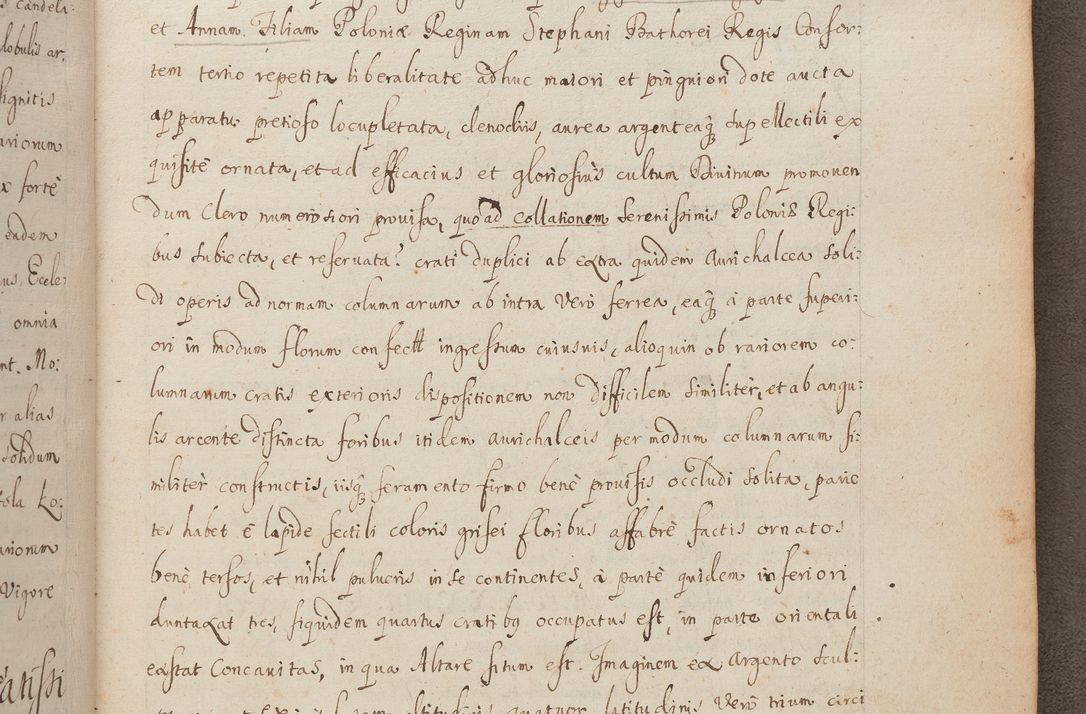 et Annam Filiam Poloniæ Reginam Stephani Bathorei Regis Consor:
tem tertio repetita liberalitate adhuc maiori et pinguiori dote aucta
apparatu pretioso locupletata, clenodiis, aurea argenteaq; supellectili ex
quisitè ornata, et ad efficacius et gloriosius cultum Divinum promoven
dum Clero numerosiori provisa, quoad Collationem Serenissimis Poloniæ Regi:
bus subiecta, et reservata. crati duplici ab extra quidem aurichalcea soli:
di operis ad normam columnarum ab intra verò ferrea, eaq; à parte superi:
ori in modum florum confectâ ingressum cuiusvis, alioquin ob rariorem co:
lumnarum cratis exterioris dispositionem non difficilem similiter, et ab angu:
lis arcente distincta foribus itidem aurichalceis per modum columnarum si:
militèr constructis, iisq; seramento firmo benè provisis occludi solita, parie
tes habet è lapide sectili coloris grisei floribus affabrè factis ornatos
benè tersos, et nihil pulveris in se continentes, à parte quidem inferiori
duntaxat tres, siquidem quartus cratibus occupatus est, in parte orientali
exstat Concavitas, in qua Altare situm est. Imaginem ex argento scul:
altitudinis quatuor latitudinis verò trium circi
candela:
globulis ar:
forte
eadem
Eccle:
omnia
Mo:
alias
solidum
Vigore